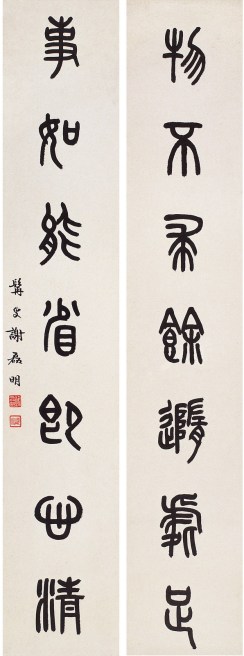 物不求餘隨處足
事如能省即心清
髯叟謝磊明